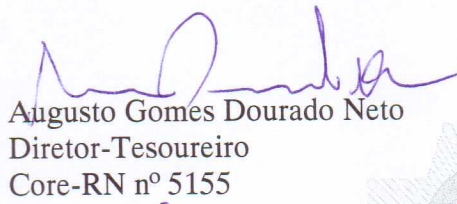 Augusto Gomes Dourado Neto
Diretor-Tesoureiro
Core-RN nº 5155